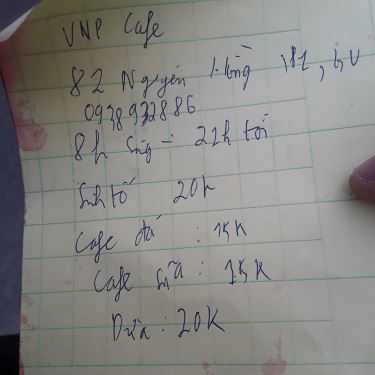 VNP Cafe
82 Nguyên Hồng
0938932886
8h sáng - 22h tối
Sinh tố 20k
Cafe đá : 15K
Cafe sữa : 15K
Dừa : 20K